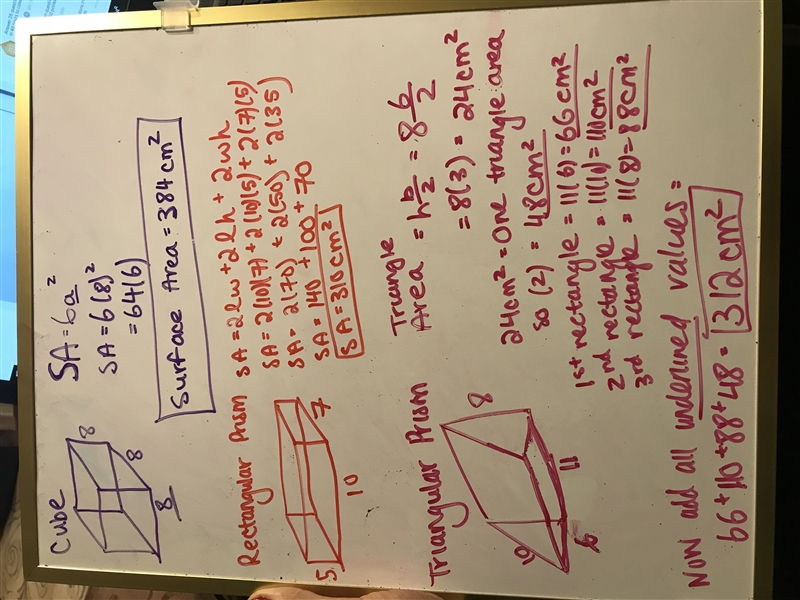 Cube
8
8
8
SA = 6a²
SA = 6(8)²
= 64(6)
Surface Area = 384 cm²
Rectangular Prism
5
10
7
SA = 2lw + 2lh + 2wh
SA = 2(10)(7) + 2(10)(5) + 2(7)(5)
SA = 2(70) + 2(50) + 2(35
SA = 140 + 100 + 70
SA = 310 cm²
Triangular Prism
10
6
11
8
Triangle
Area = h b/2 = 8 6/2
= 8(3) = 24cm²
24cm² = One triangle area
so (2) = 48cm²
1st rectangle = 11(6) = 66cm²
2nd rectangle = 11(10) = 110cm²
3rd rectangle = 11(8) = 88cm²
Now add all underlined values =
66+110+88+48 = 312 cm²